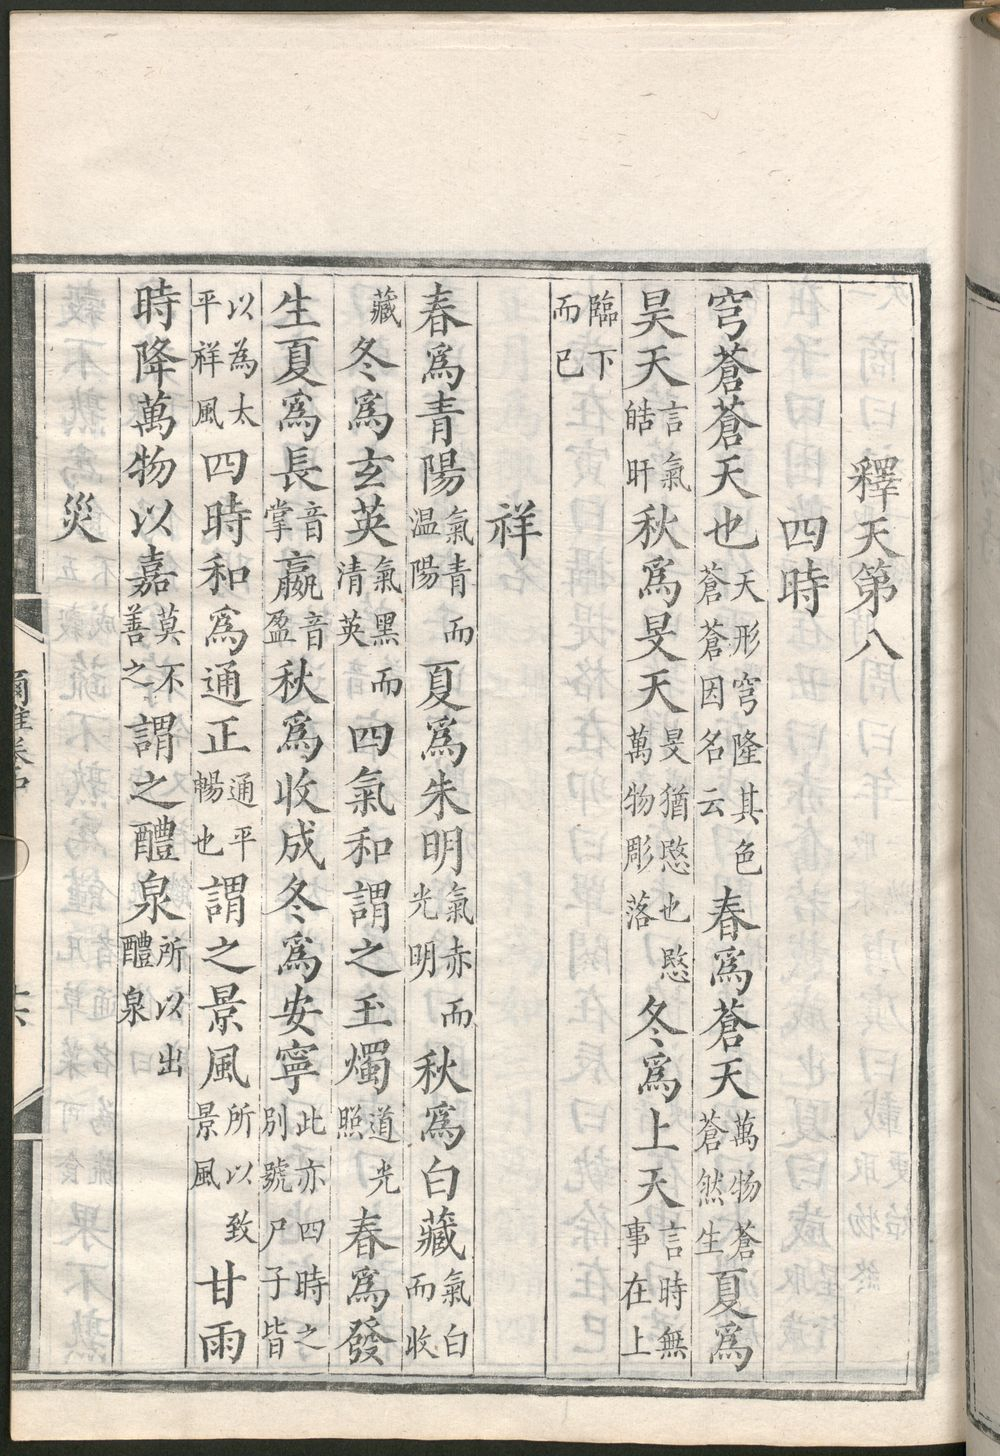 釋天第八
四時
穹蒼蒼天也天形穹隆其色蒼蒼因名云春爲蒼天萬物蒼蒼然生夏爲
昊天言氣皓旰秋爲旻天旻猶愍也愍萬物彫落冬爲上天言時無事在上
臨下而已
祥
春爲青陽氣青而温陽夏爲朱明氣赤而光明秋爲白藏氣白而收
藏冬爲玄英氣黑而清英四氣和謂之玉燭道光照春爲發
生夏爲長音掌嬴音盈秋爲收成冬爲安寧此亦四時之別號尸子皆
以為太平祥風四時和爲通正通平暢也謂之景風所以致景風甘雨
時降萬物以嘉莫不善之謂之醴泉所以出醴泉
災
爾雅卷中
十六